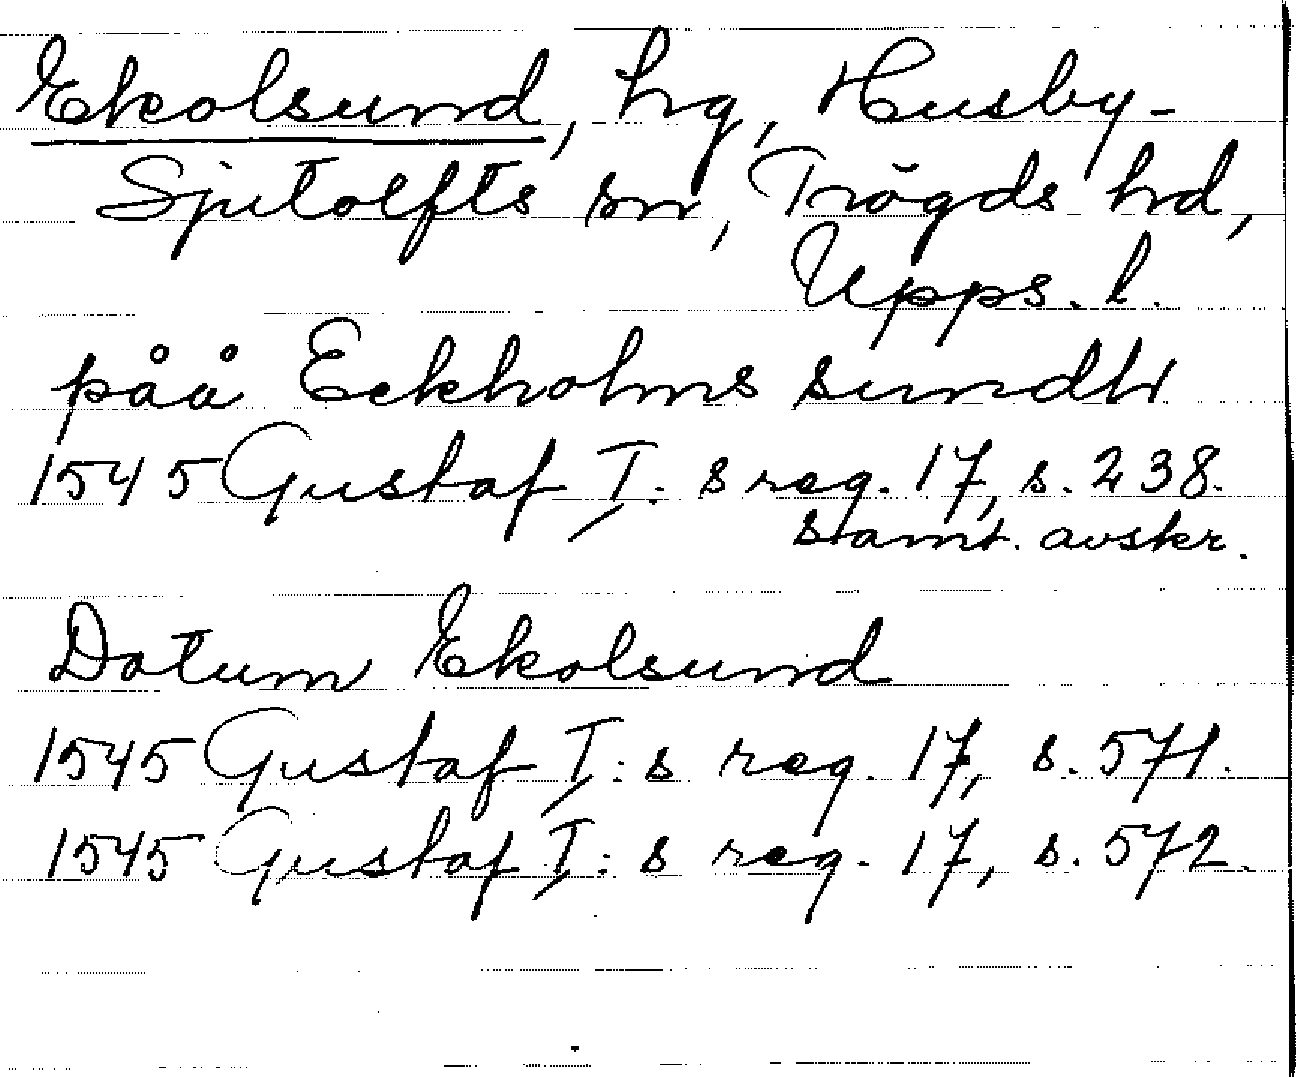 Ekolsund, hg, Husby-
Sjutolfts sn, Trögds hd,
Upps. l.
påå Eckholms sundh
1545 Gustaf I: s reg. 17, s. 238.
samt. avskr.
Datum Ekolsund
1545 Gustaf I: s reg. 17, s. 571.
1545 Gustaf I: s reg. 17, s. 572.